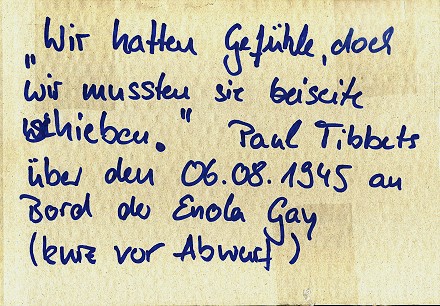 „Wir hatten Gefühle, doch
wir mussten sie beiseite
schieben." Paul Tibbets
über den 06.08.1945 an
Bord der Enola Gay
(kurz vor Abwurf)